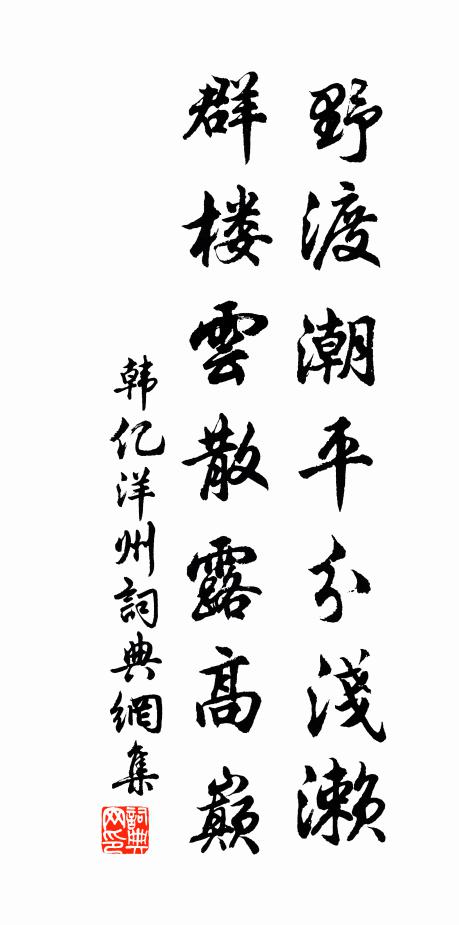 野渡潮平分淺瀨
群楼雲散露高巔
韩亿洋州詞典網集
詞典網印